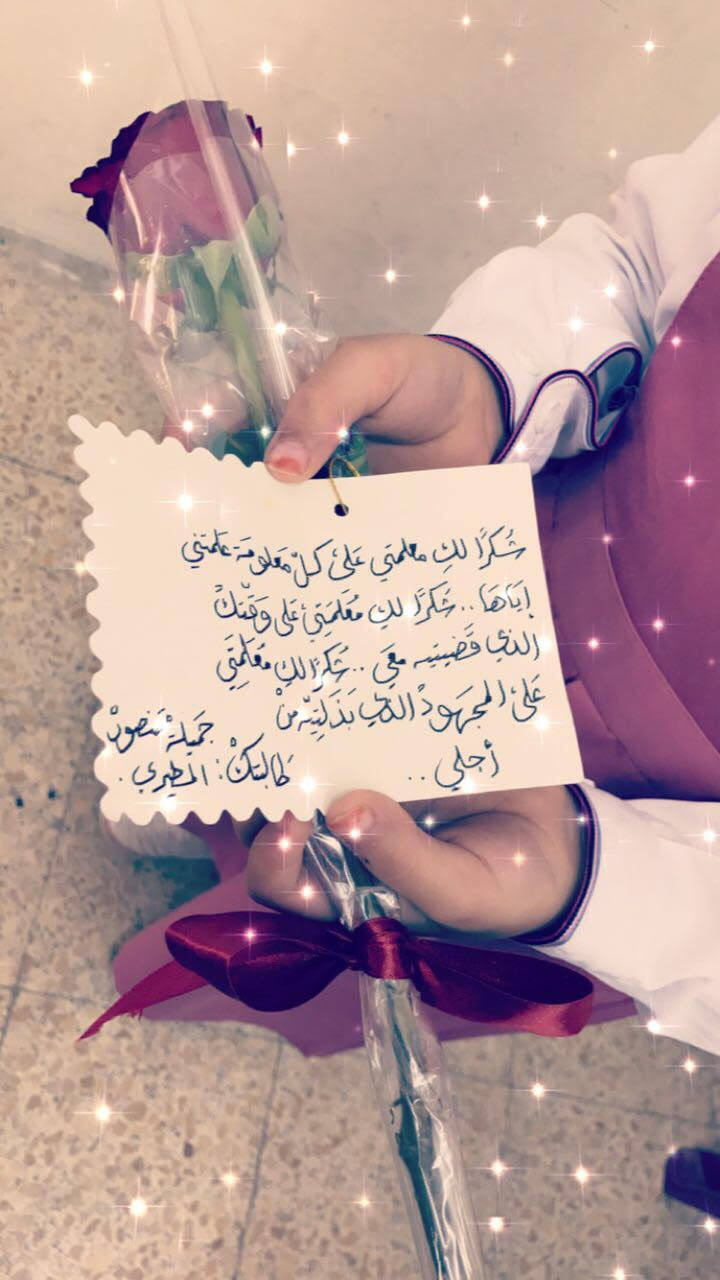 شُكرًا لكِ معلمتي عَلى كلّ مَعلومَة عَلمتني
إيَاهَا .. شُكرًا لكِ مُعَلمَتِي عَلى وَقتكْ
الذي قَضيتيه معَي .. شُكرًا لكِ مُعَلمَتَي
عَلى المجهُودْ الذي بَذَلتِيْه مِنْ
أجلي ..
جَميلَة مَنصورْ
طَالبتكْ : المطيري .